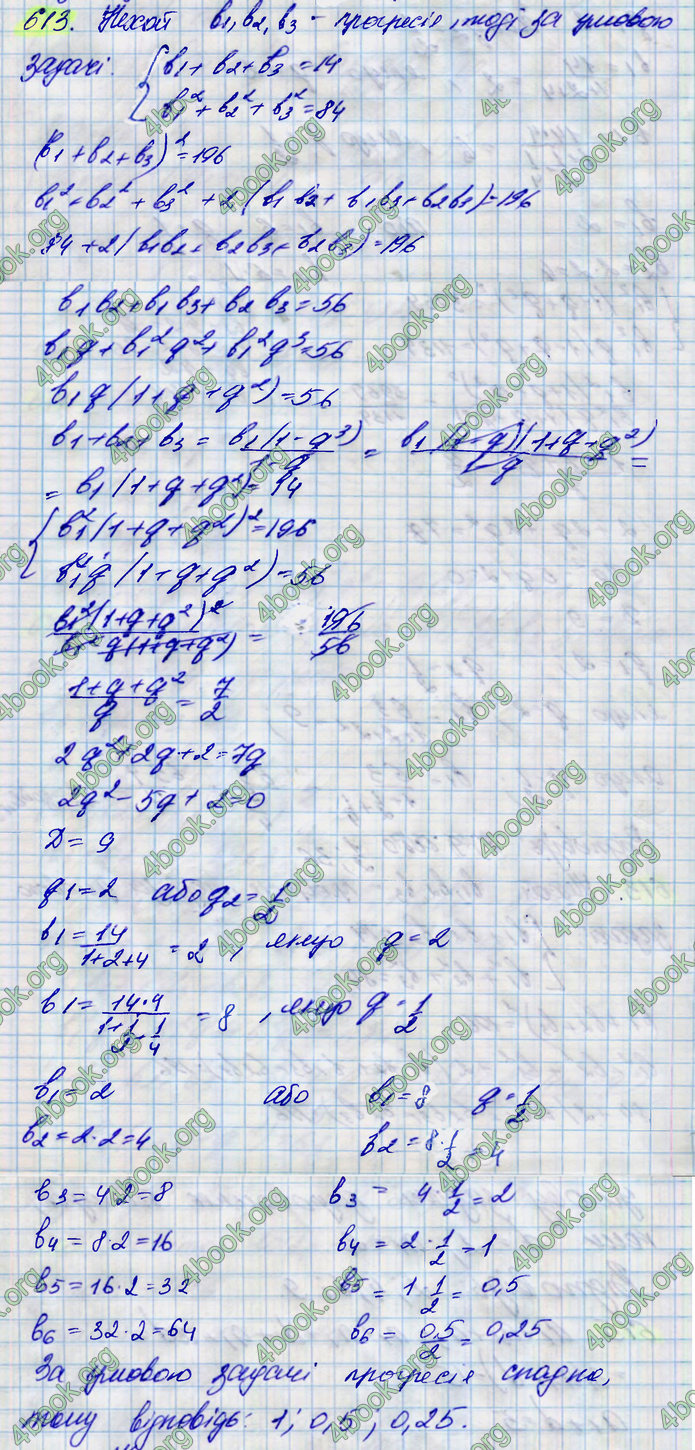 613. Нехай b1, b2, b3 - прогресія, тоді за умовою
задачі: { b1 + b2 + b3 = 14
b1² + b2² + b3² = 84
(b1 + b2 + b3)² = 196
b1² + b2² + b3² + 2(b1 b2 + b1 b3 + b2 b3) = 196
84 + 2(b1b2 + b2b3 + b2b3) = 196
b1 b2 + b1 b3 + b2 b3 = 56
b1q + b1²q² + b1²q³ = 56
b1q(1 + q + q²) = 56
b1 + b2 + b3 = b1(1 - q³)/1-q = b1(1-q)(1+q+q²)/q =
= b1(1 + q + q²) = 14
{ b1²(1 + q + q²)² = 196
b1²q(1 + q + q²) = 56
b1²(1+q+q²)²/b1²q(1+q+q²) = 196/56
1+q+q²/q = 7/2
2q² + 2q + 2 = 7q
2q² - 5q + 2 = 0
D = 9
q1 = 2 або q2 = 1/2
b1 = 14/1+2+4 = 2, якщо q = 2
b1 = 14·4/1+1/2+1/4 = 8, якщо q = 1/2
b1 = 2 або b1 = 8 q = 1/2
b2 = 2·2 = 4 b2 = 8·1/2 = 4
b3 = 4·2 = 8 b3 = 4·1/2 = 2
b4 = 8·2 = 16 b4 = 2·1/2 = 1
b5 = 16·2 = 32 b5 = 1·1/2 = 0,5
b6 = 32·2 = 64 b6 = 0,5/2 = 0,25
За умовою задачі прогресія спадна,
тому відповідь: 1; 0,5; 0,25.
4book.org